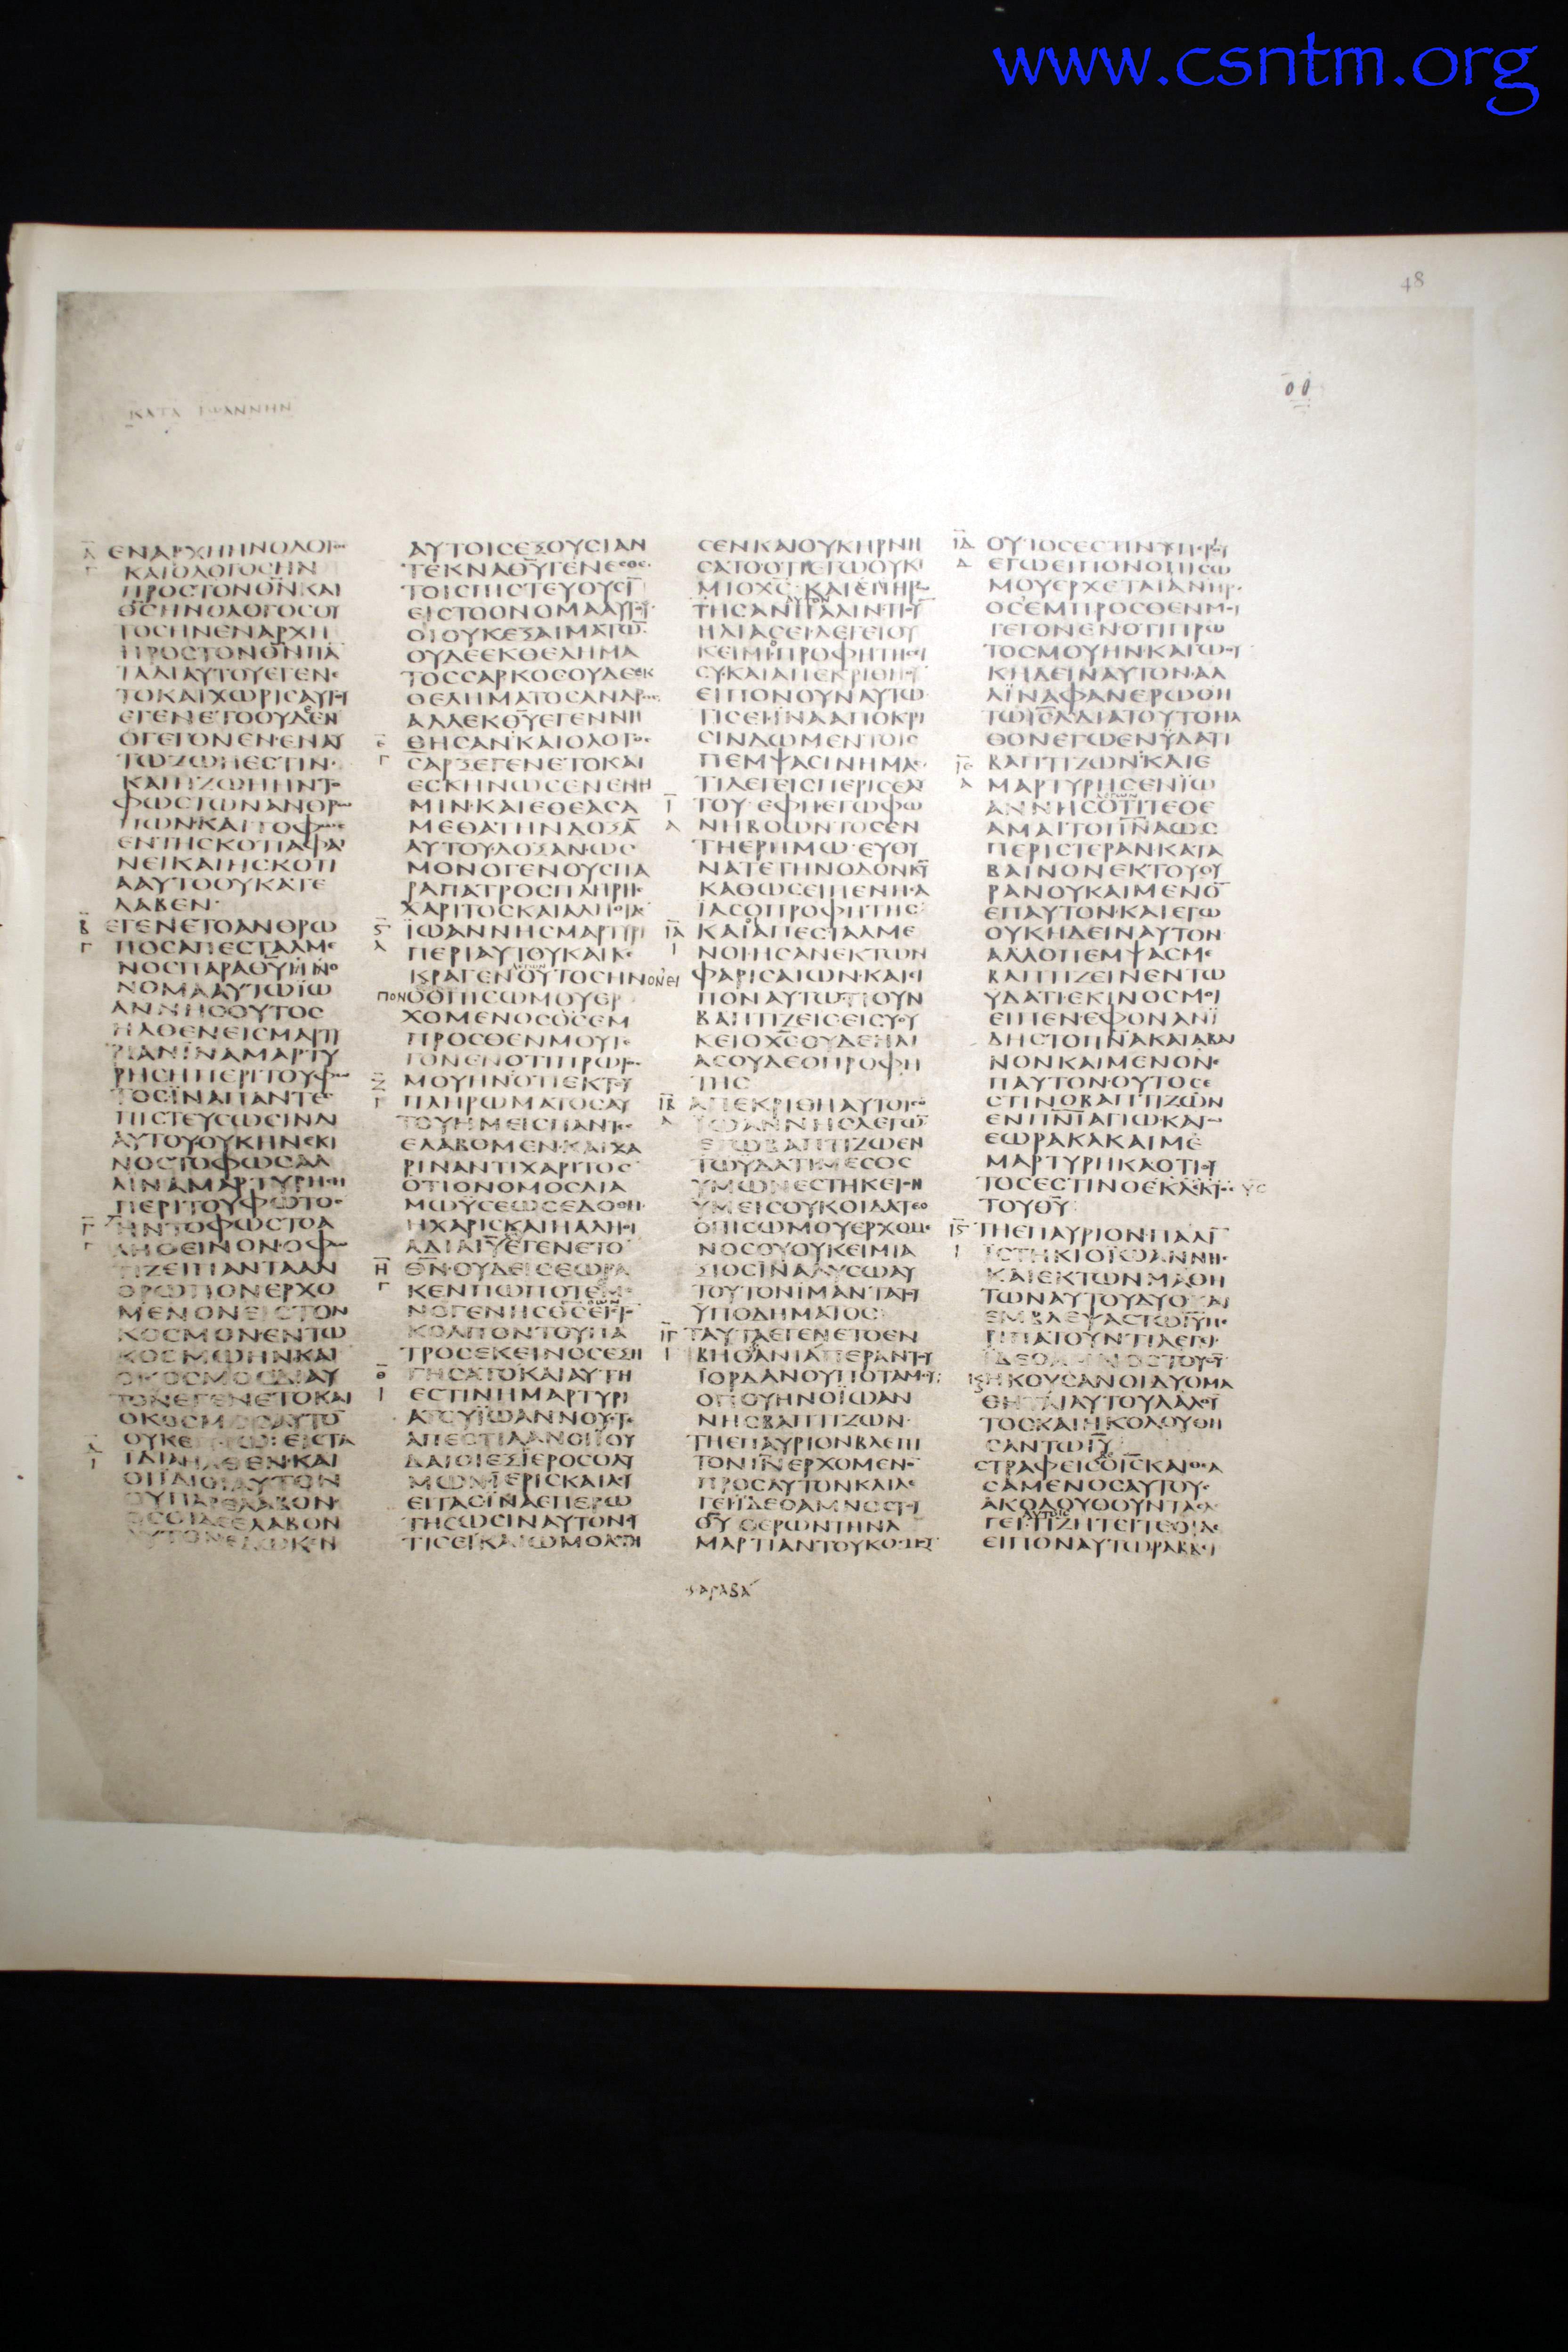 www.csntm.org
48
ΚΑΤΑ ΙΩΑΝΝΗΝ
ΕΝΑΡΧΗΗΝΟΛΟΓΟϹ
ΚΑΙΟΛΟΓΟϹΗΝ
ΠΡΟϹΤΟΝΘΝΚΑΙ
ΘϹΗΝΟΛΟΓΟϹΟΥ
ΤΟϹΗΝΕΝΑΡΧΗ
ΠΡΟϹΤΟΝΘΝΠΑ
ΤΑΔΙΑΥΤΟΥΕΓΕΝΕ
ΤΟΚΑΙΧΩΡΙϹΑΥΤΟΥ
ΕΓΕΝΕΤΟΟΥΔΕΝ
ΟΓΕΓΟΝΕΝ·ΕΝΑΥ
ΤΩΖΩΗΕϹΤΙΝ·
ΚΑΙΗΖΩΗΗΝΤΟ
ΦΩϹΤΩΝΑΝΘΡΩ
ΠΩΝ·ΚΑΙΤΟΦΩϹ
ΕΝΤΗϹΚΟΤΙΑΦΑΙ
ΝΕΙΚΑΙΗϹΚΟΤΙ
ΑΑΥΤΟΟΥΚΑΤΕ
ΛΑΒΕΝ·
ΕΓΕΝΕΤΟΑΝΘΡΩ
ΠΟϹΑΠΕϹΤΑΛΜΕ
ΝΟϹΠΑΡΑΘΥΗΝΟ
ΝΟΜΑΑΥΤΩΪΩ
ΑΝΝΗϹΟΥΤΟϹ
ΗΛΘΕΝΕΙϹΜΑΡΤΥ
ΡΙΑΝΪΝΑΜΑΡΤΥ
ΡΗϹΗΠΕΡΙΤΟΥΦΩ
ΤΟϹΪΝΑΠΑΝΤΕϹ
ΠΙϹΤΕΥϹΩϹΙΝΔΙ
ΑΥΤΟΥΟΥΚΗΝΕΚΙ
ΝΟϹΤΟΦΩϹΑΛ
ΛΙΝΑΜΑΡΤΥΡΗϹΗ
ΠΕΡΙΤΟΥΦΩΤΟϹ
ΗΝΤΟΦΩϹΤΟΑ
ΛΗΘΕΙΝΟΝ·ΟΦΩ
ΤΙΖΕΙΠΑΝΤΑΑΝ
ΘΡΩΠΟΝΕΡΧΟ
ΜΕΝΟΝΕΙϹΤΟΝ
ΚΟϹΜΟΝ·ΕΝΤΩ
ΚΟϹΜΩΗΝΚΑΙ
ΟΚΟϹΜΟϹΔΙΑΥ
ΤΟΝΕΓΕΝΕΤΟΚΑΙ
ΑΥΤΟΙϹΕΞΟΥϹΙΑΝ
ΤΕΚΝΑΘΥΓΕΝΕϹΘΕ
ΤΟΙϹΠΙϹΤΕΥΟΥϹΙ
ΕΙϹΤΟΟΝΟΜΑΑΥΤΟΥ·
ΟΙΟΥΚΕΞΑΙΜΑΤΩ
ΟΥΔΕΕΚΘΕΛΗΜΑ
ΤΟϹϹΑΡΚΟϹΟΥΔΕΕΚ
ΘΕΛΗΜΑΤΟϹΑΝΔΡΟϹ
ΑΛΛΕΚΘΥΕΓΕΝΝΗ
ΘΗϹΑΝΚΑΙΟΛΟΓΟϹ
ϹΑΡΞΕΓΕΝΕΤΟΚΑΙ
ΕϹΚΗΝΩϹΕΝΕΝΗ
ΜΙΝ·ΚΑΙΕΘΕΑϹΑ
ΜΕΘΑΤΗΝΔΟΞΑ
ΑΥΤΟΥΔΟΞΑΝΩϹ
ΜΟΝΟΓΕΝΟΥϹΠΑ
ΡΑΠΑΤΡΟϹΠΛΗΡΗϹ
ΧΑΡΙΤΟϹΚΑΙΑΛΗΘΙΑϹ
ΪΩΑΝΝΗϹΜΑΡΤΥΡΙ
ΠΕΡΙΑΥΤΟΥΚΑΙΚΕ
ΚΡΑΓΕΝΟΥΤΟϹΗΝΟΝΕΙ
ΠΟΝΟΟΠΙϹΩΜΟΥΕΡ
ΧΟΜΕΝΟϹΟϹΕΜ
ΠΡΟϹΘΕΝΜΟΥΓΕ
ΓΟΝΕΝΟΤΙΠΡΩΤΟϹ
ΜΟΥΗΝΟΤΙΕΚΤΟΥ
ΠΛΗΡΩΜΑΤΟϹΑΥ
ΤΟΥΗΜΕΙϹΠΑΝΤΕϹ
ΕΛΑΒΟΜΕΝ·ΚΑΙΧΑ
ΡΙΝΑΝΤΙΧΑΡΙΤΟϹ
ΟΤΙΟΝΟΜΟϹΔΙΑ
ΜΩΫϹΕΩϹΕΔΟΘΗ
ΗΧΑΡΙϹΚΑΙΗΑΛΗΘΙ
ΑΔΙΑΙΥΕΓΕΝΕΤΟ
ΘΝ·ΟΥΔΕΙϹΕΩΡΑ
ΚΕΝΠΩΠΟΤΕΜΟ
ΚΟΛΠΟΝΤΟΥΠΑ
ΤΡΟϹΕΚΕΙΝΟϹΕΞΗ
ΓΗϹΑΤΟΚΑΙΑΥΤΗ
ΕϹΤΙΝΗΜΑΡΤΥΡΙ
ΑΤΟΥΪΩΑΝΝΟΥΟΤΕ
ΑΠΕϹΤΙΛΑΝΟΙΪΟΥ
ΔΑΙΟΙΕΞΪΕΡΟϹΟΛΥ
ΜΩΝΪΕΡΙϹΚΑΙΛΕΥ
ΕΙΤΑϹΪΝΑΕΠΕΡΩ
ΤΗϹΩϹΙΝΑΥΤΟΝϹΥ
ΤΙϹΕΙΚΑΙΩΜΟΛΟΓΗ
ϹΕΝΚΑΙΟΥΚΗΡΝΗ
ϹΑΤΟΟΤΙΕΓΩΟΥΚΙ
ΜΙΟΧϹ·ΚΑΙΕΠΗΡΩ
ΤΗϹΑΝΠΑΛΙΝΤΙϹΥ
ΗΛΙΑϹΕΙ·ΛΕΓΕΙΟΥ
ΚΕΙΜΙΠΡΟΦΗΤΗϹΕΙ
ϹΥ·ΚΑΙΑΠΕΚΡΙΘΗΟΥ
ΕΙΠΟΝΟΥΝΑΥΤΩ
ΤΙϹΕΙΪΝΑΑΠΟΚΡΙ
ϹΙΝΔΩΜΕΝΤΟΙϹ
ΠΕΜΨΑϹΙΝΗΜΑϹ·
ΤΙΛΕΓΕΙϹΠΕΡΙϹΕΑΥ
ΤΟΥ·ΕΦΗΕΓΩΦΩ
ΝΗΒΟΩΝΤΟϹΕΝ
ΤΗΕΡΗΜΩ·ΕΥΘΥ
ΝΑΤΕΤΗΝΟΔΟΝΚΥ
ΚΑΘΩϹΕΙΠΕΝΗϹΑ
ΪΑϹΟΠΡΟΦΗΤΗϹ
ΚΑΙΑΠΕϹΤΑΛΜΕ
ΝΟΙΗϹΑΝΕΚΤΩΝ
ΦΑΡΙϹΑΙΩΝ·ΚΑΙΕΙ
ΠΟΝΑΥΤΩΤΙΟΥΝ
ΒΑΠΤΙΖΕΙϹΕΙϹΥΟΥ
ΚΕΙΟΧϹΟΥΔΕΗΛΙ
ΑϹΟΥΔΕΟΠΡΟΦΗ
ΤΗϹ
ΑΠΕΚΡΙΘΗΑΥΤΟΙϹΟ
ΪΩΑΝΝΗϹΛΕΓΩ
ΕΓΩΒΑΠΤΙΖΩΕΝ
ΤΩΥΔΑΤΙΜΕϹΟϹ
ΥΜΩΝΕϹΤΗΚΕΙΟΝ
ΥΜΕΙϹΟΥΚΟΙΔΑΤΕΟ
ΟΠΙϹΩΜΟΥΕΡΧΟΜΕ
ΝΟϹΟΥΟΥΚΕΙΜΙΑ
ΞΙΟϹΪΝΑΛΥϹΩΑΥ
ΤΟΥΤΟΝΙΜΑΝΤΑΤΟΥ
ΥΠΟΔΗΜΑΤΟϹ
ΤΑΥΤΑΕΓΕΝΕΤΟΕΝ
ΒΗΘΑΝΙΑΠΕΡΑΝΤΟΥ
ΪΟΡΔΑΝΟΥΠΟΤΑΜΟΥ
ΟΠΟΥΗΝΟΪΩΑΝ
ΝΗϹΒΑΠΤΙΖΩΝ·
ΤΗΕΠΑΥΡΙΟΝΒΛΕΠΙ
ΤΟΝΙΝΕΡΧΟΜΕΝΟ
ΠΡΟϹΑΥΤΟΝΚΑΙΛΕ
ΓΕΙΪΔΕΟΑΜΝΟϹΤΟΥ
ΘΥΟΕΡΩΝΤΗΝΑ
ΜΑΡΤΙΑΝΤΟΥΚΟϹΜΟΥ
ΟΥΤΟϹΕϹΤΙΝΥΠΕΡΟΥ
ΕΓΩΕΙΠΟΝΟΠΙϹΩ
ΜΟΥΕΡΧΕΤΑΙΑΝΗΡ·
ΟϹΕΜΠΡΟϹΘΕΝΜΟΥ
ΓΕΓΟΝΕΝΟΤΙΠΡΩ
ΤΟϹΜΟΥΗΝ·ΚΑΓΩΟΥ
ΚΗΔΕΙΝΑΥΤΟΝ·ΑΛ
ΛΪΝΑΦΑΝΕΡΩΘΗ
ΤΩΙϹΛΔΙΑΤΟΥΤΟΗΛ
ΘΟΝΕΓΩΕΝΫΔΑΤΙ
ΒΑΠΤΙΖΩΝ·ΚΑΙΕ
ΜΑΡΤΥΡΗϹΕΝΪΩ
ΑΝΝΗϹΟΤΙΤΕΘΕ
ΑΜΑΙΤΟΠΝΑΩϹ
ΠΕΡΙϹΤΕΡΑΝΚΑΤΑ
ΒΑΙΝΟΝΕΚΤΟΥΟΥ
ΡΑΝΟΥΚΑΙΜΕΝΟ
ΕΠΑΥΤΟΝ·ΚΑΙΕΓΩ
ΟΥΚΗΔΕΙΝΑΥΤΟΝ
ΑΛΛΟΠΕΜΨΑϹΜΕ
ΒΑΠΤΙΖΕΙΝΕΝΤΩ
ΥΔΑΤΙ·ΕΚΙΝΟϹΜΟΙ
ΕΙΠΕΝ·ΕΦΟΝΑΝΪ
ΔΗϹΤΟΠΝΑΚΑΤΑΒΑΙ
ΝΟΝΚΑΙΜΕΝΟΝΕ
ΠΑΥΤΟΝ·ΟΥΤΟϹΕ
ϹΤΙΝΟΒΑΠΤΙΖΩΝ
ΕΝΠΝΙΑΓΙΩΚΑΓΩ
ΕΩΡΑΚΑΚΑΙΜΕ
ΜΑΡΤΥΡΗΚΑΟΤΙΟΥ
ΤΟϹΕϹΤΙΝΟΕΚΛΕΚΤΟϹ
ΤΟΥΘΥ
ΤΗΕΠΑΥΡΙΟΝΠΑΛΙ
ΪϹΤΗΚΙΟΪΩΑΝΝΗϹ
ΚΑΙΕΚΤΩΝΜΑΘΗ
ΤΩΝΑΥΤΟΥΔΥΟΚΑΙ
ΕΜΒΛΕΨΑϹΤΩΙΥΠΕ
ΡΙΠΑΤΟΥΝΤΙΛΕΓΕΙ
ΪΔΕΟΑΜΝΟϹΤΟΥΘΥ
ΗΚΟΥϹΑΝΟΙΔΥΟΜΑ
ΘΗΤΑΙΑΥΤΟΥΛΑΛΟΥ
ΤΟϹΚΑΙΗΚΟΛΟΥΘΗ
ϹΑΝΤΩΙΥ
ϹΤΡΑΦΕΙϹΟΙϹΚΑΙΘΕΑ
ϹΑΜΕΝΟϹΑΥΤΟΥϹ
ΑΚΟΛΟΥΘΟΥΝΤΑϹΛΕ
ΓΕΙ·ΤΙΖΗΤΕΙΤΕΟΙΔΕ
ΕΙΠΟΝΑΥΤΩΡΑΒΒΙ